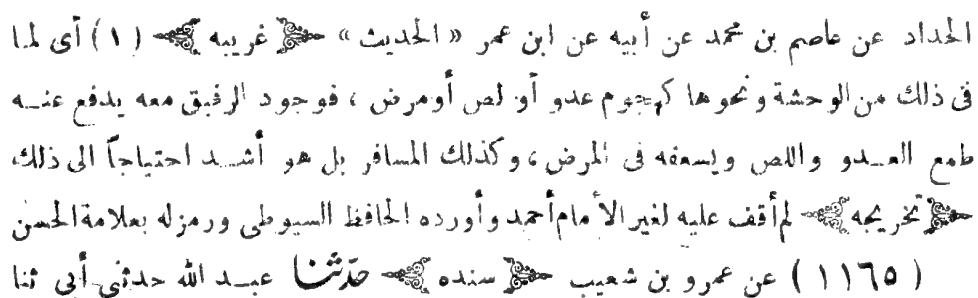 الحداد عن عاصم بن محمد عن أبيه عن ابن عمر « الحديث » ﴿ غريبه ﴾ ( ١ ) أى لما
فى ذلك من الوحشة ونحوها كهجوم عدو أو لص أو مرض ، فوجود الرفيق معه يدفع عنه
طمع العدو واللص ويسعفه فى المرض ، وكذلك المسافر بل هو أشد احتياجاً الى ذلك
﴿ تخريجه ﴾ لم أقف عليه لغير الأمام أحمد وأورده الحافظ السيوطى ورمز له بعلامة الحسن
( ١١٦٥ ) عن عمرو بن شعيب ﴿ سنده ﴾ حدثنا عبد الله حدثنى أبى ثنا